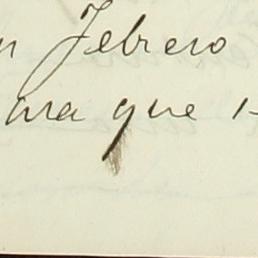 n Febrero
ara que